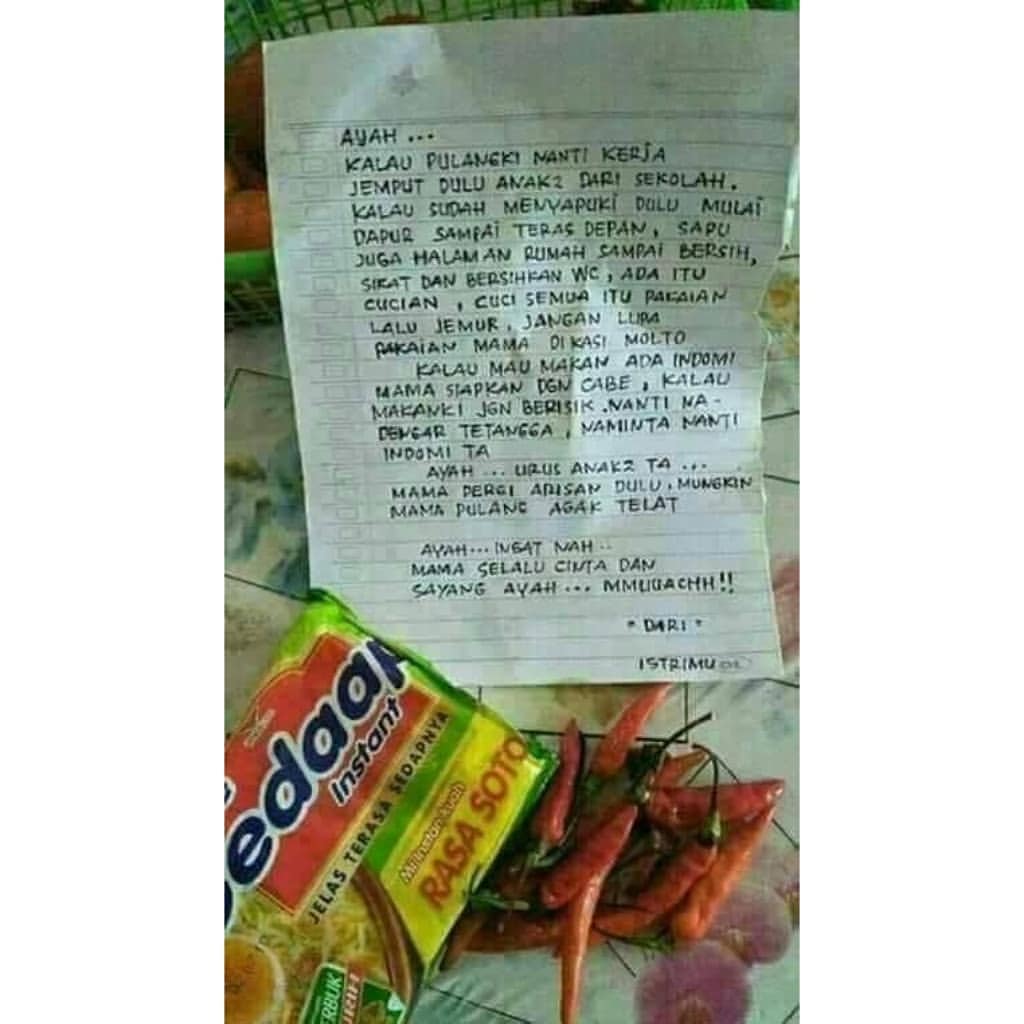 AYAH ...
KALAU PULANGKI NANTI KERJA
JEMPUT DULU ANAK2 DARI SEKOLAH.
KALAU SUDAH MENYAPUKI DULU MULAI
DAPUR SAMPAI TERAS DEPAN, SAPU
JUGA HALAMAN RUMAH SAMPAI BERSIH,
SIKAT DAN BERSIHKAN WC, ADA ITU
CUCIAN, CUCI SEMUA ITU PAKAIAN
LALU JEMUR, JANGAN LUPA
PAKAIAN MAMA DI KASI MOLTO
KALAU MAU MAKAN ADA INDOMI
MAMA SIAPKAN DGN CABE, KALAU
MAKANKI JGN BERISIK. NANTI NA-
DENGAR TETANGGA, NAMINTA NANTI
INDOMI TA
AYAH ... URUS ANAK2 TA ...
MAMA PERGI ARISAN DULU. MUNGKIN
MAMA PULANG AGAK TELAT
AYAH... INGAT NAH..
MAMA SELALU CINTA DAN
SAYANG AYAH ... MMUUACHH!!
"DARI"
ISTRIMU
edaap
instant
JELAS TERASA SEDAPNYA
Mi Instan Kuah
RASA SOTO